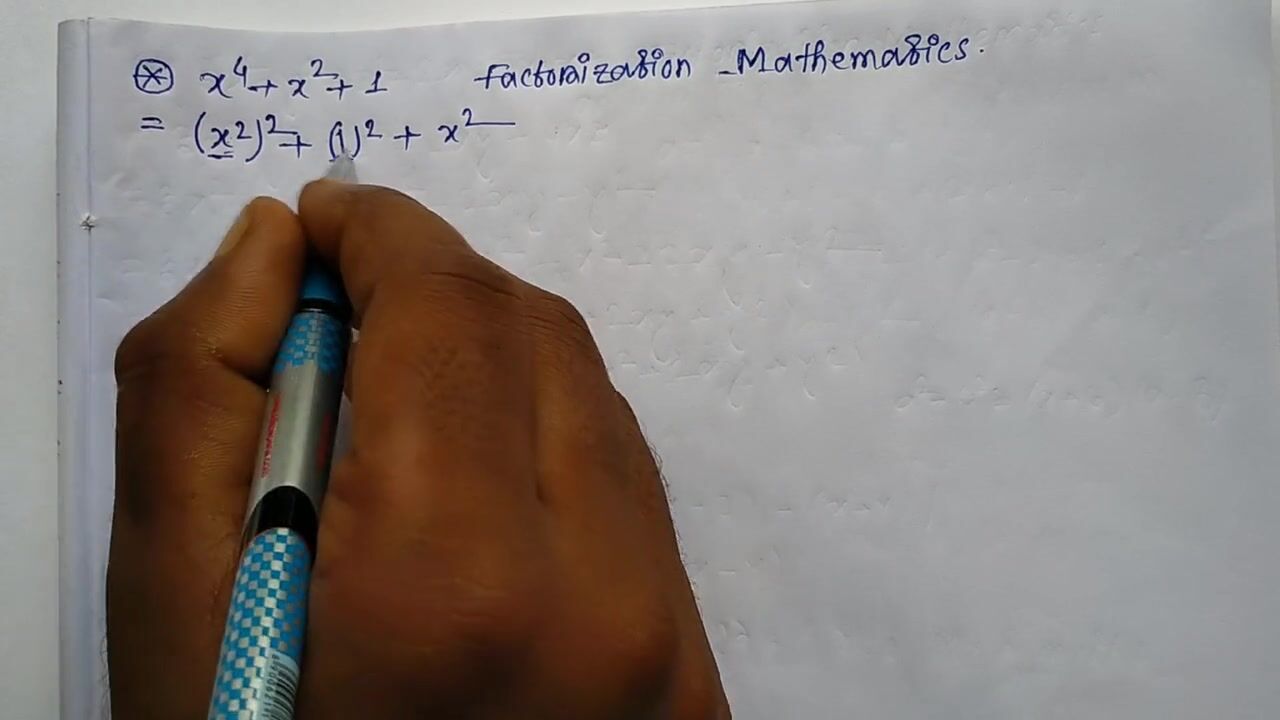 ⊛ x⁴ + x² + 1 Factorization - Mathematics.
= (x²)² + (1)² + x²